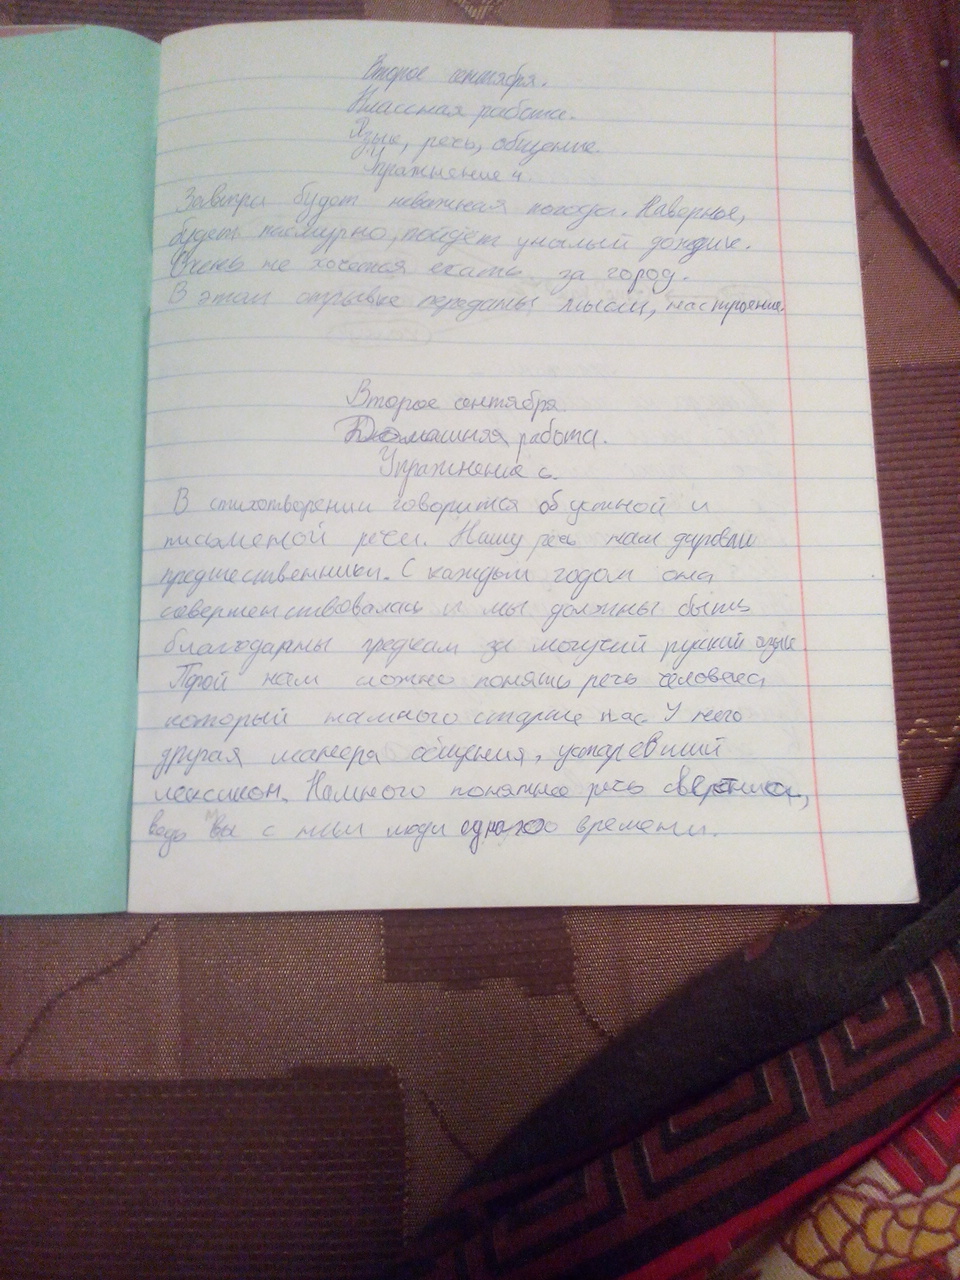 Второе сентября.
Классная работа.
Язык, речь, общение.
Упражнение 4.
Завтра будет неважная погода. Наверное,
будет пасмурно, пойдёт унылый дождик.
Очень не хочется ехать за город.
В этом отрывке переданы мысли, настроение.
Второе сентября.
Домашняя работа.
Упражнение 6.
В стихотворении говорится об устной и
письменой речи. Нашу речь нам даровали
предшественники. С каждым годом она
совершенствовалась и мы должны быть
благодарны предкам за могучий русский язык.
Порой нам сложно понять речь человека
который намного старше нас У него
другая манера общения, устаревший
лексикон. Намного понятнее речь сверстника,
ведь вы с ним люди одного времени.